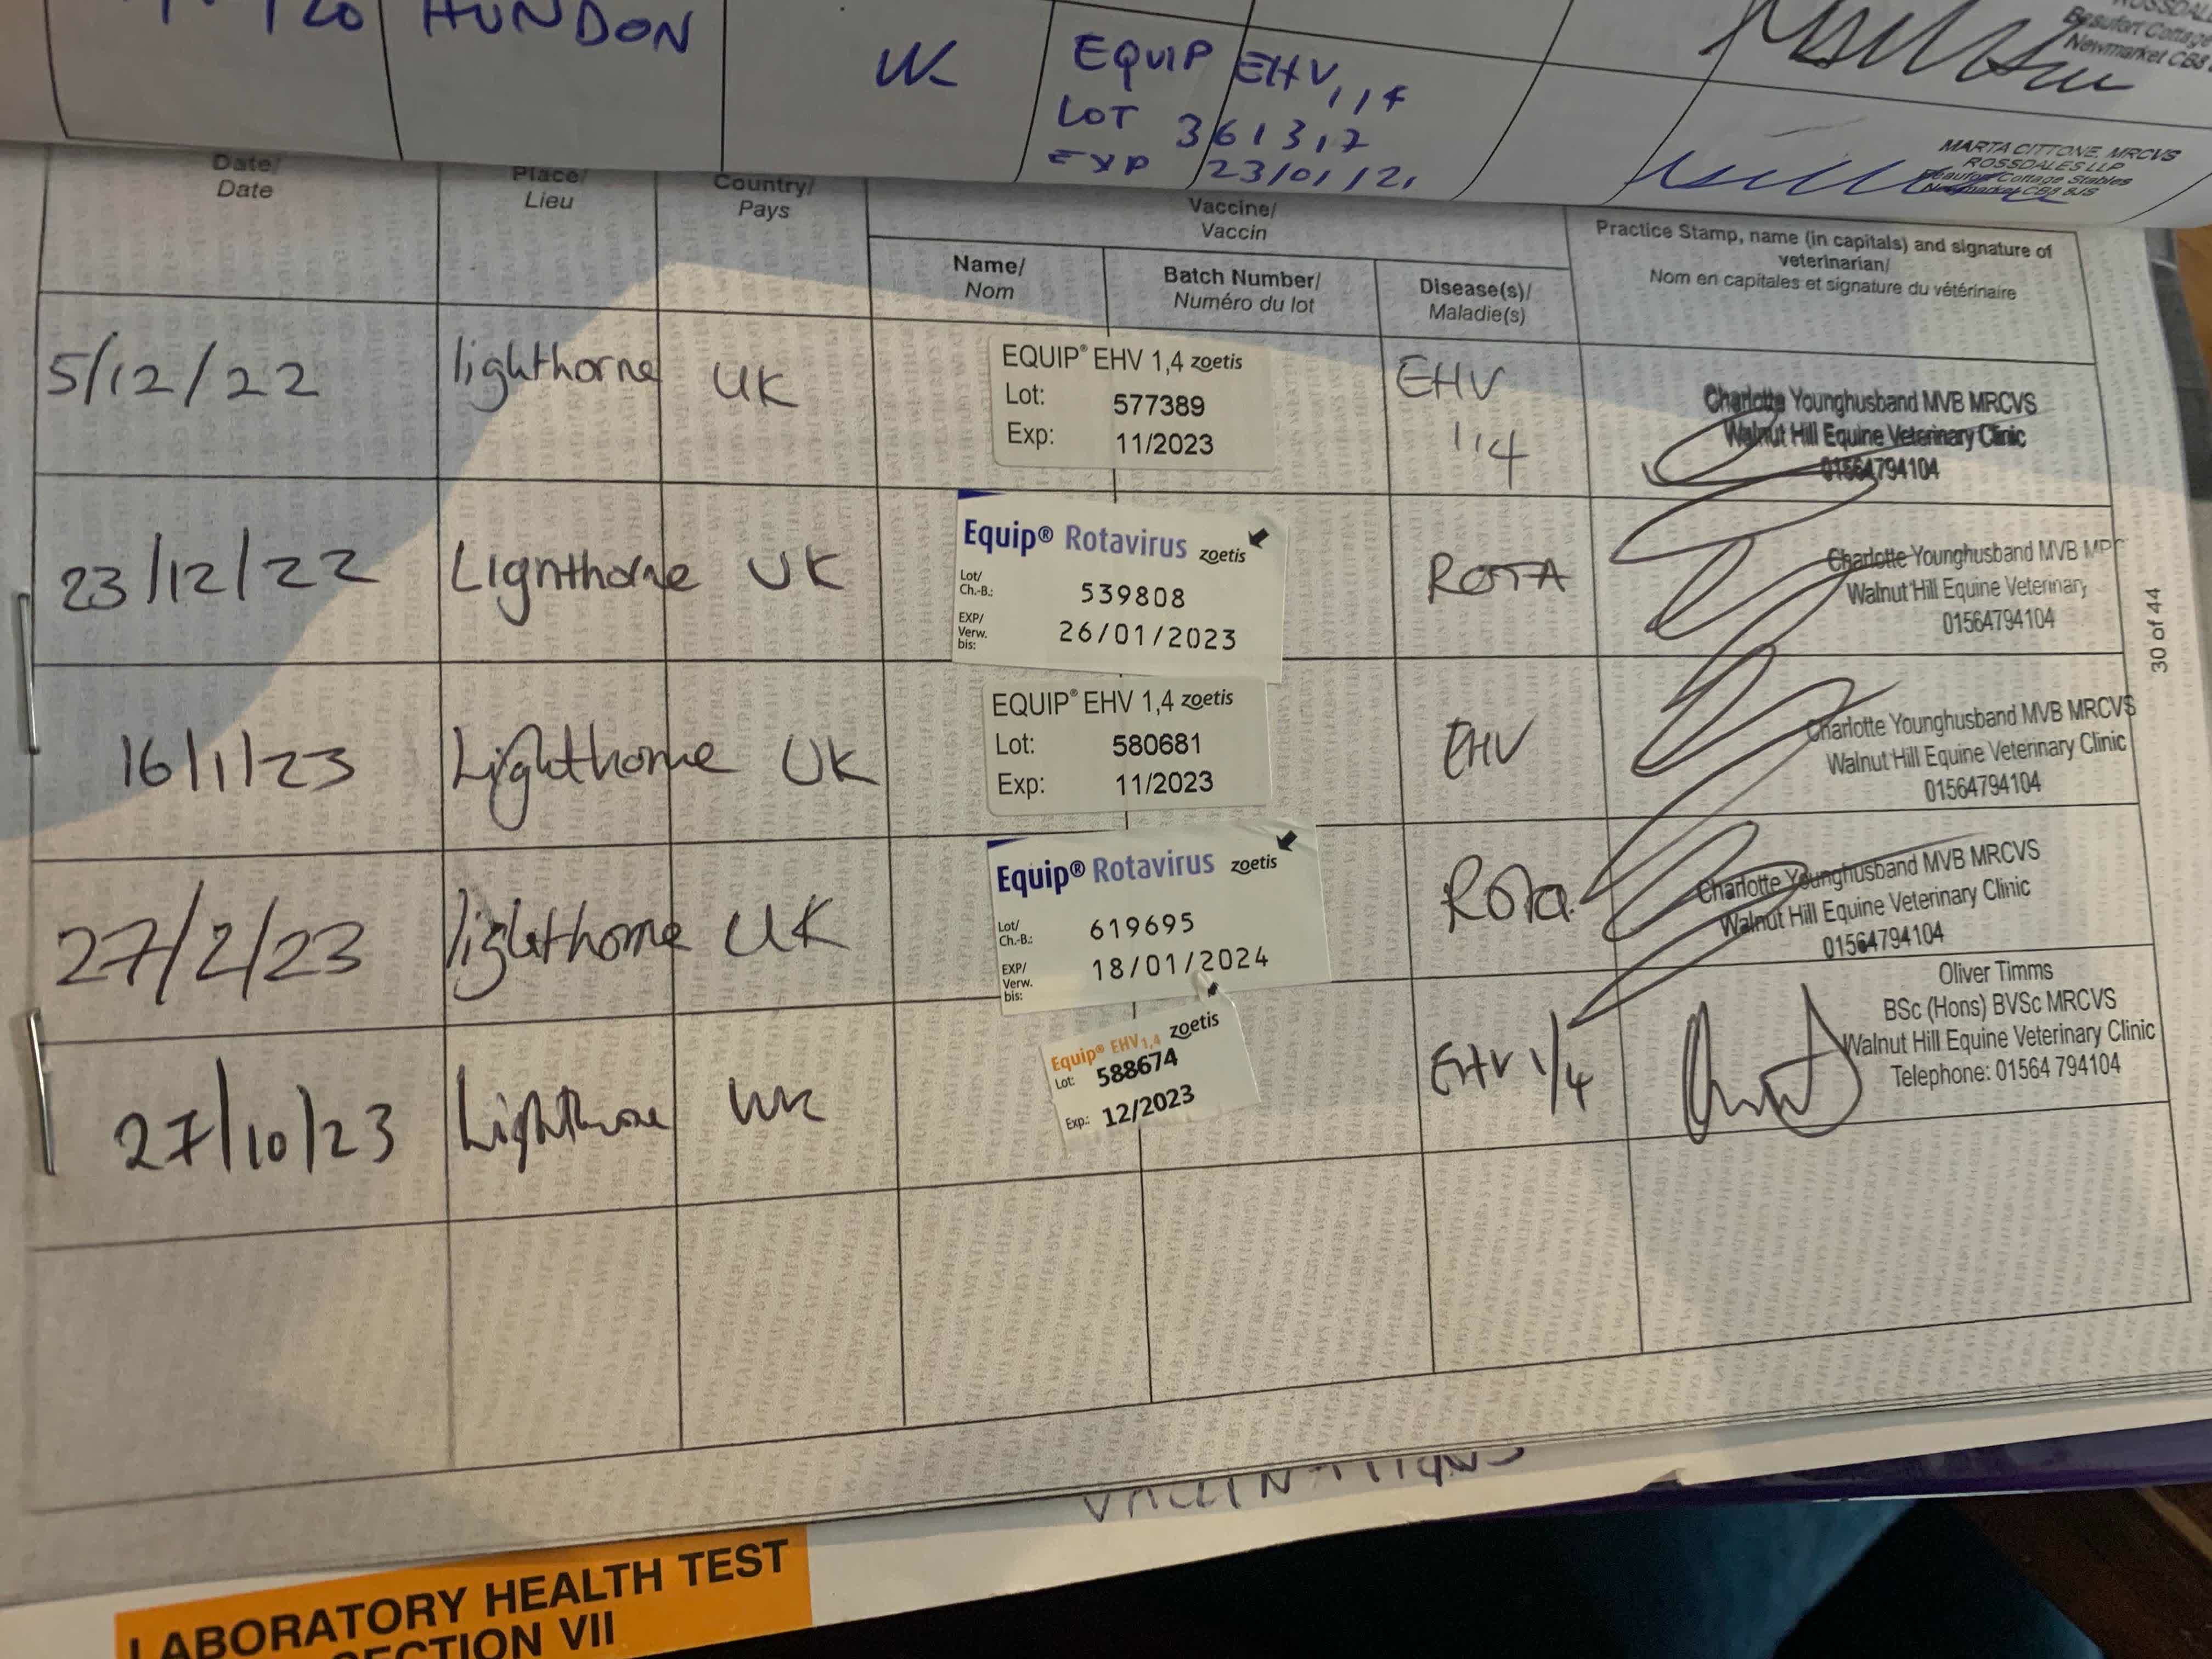 HUNDON
UK
EQUIP EHV 1,4
LOT 361317
EXP 23/01/21
ROSSDALES
Beaufort Cottage
Newmarket CB8
MARTA CITTONE, MRCVS
ROSSDALES LLP
Beaufort Cottage Stables
Newmarket CB8 8JS
Date/
Date
Place/
Lieu
Country/
Pays
Vaccine/
Vaccin
Name/
Nom
Batch Number/
Numéro du lot
Disease(s)/
Maladie(s)
Practice Stamp, name (in capitals) and signature of
veterinarian/
Nom en capitales et signature du vétérinaire
5/12/22
lighthorne
UK
EQUIP® EHV 1,4 zoetis
Lot: 577389
Exp: 11/2023
EHV
1,4
Charlotte Younghusband MVB MRCVS
Walnut Hill Equine Veterinary Clinic
01564794104
23/12/22
Lighthorne
UK
Equip® Rotavirus zoetis
Lot/
Ch.-B.: 539808
EXP/
Verw.
bis: 26/01/2023
ROTA
Charlotte Younghusband MVB
Walnut Hill Equine Veterinary
01564794104
16/1/23
Lighthorne
UK
EQUIP® EHV 1,4 zoetis
Lot: 580681
Exp: 11/2023
EHV
Charlotte Younghusband MVB MRCVS
Walnut Hill Equine Veterinary Clinic
01564794104
27/2/23
lighthorne
UK
Equip® Rotavirus zoetis
Lot/
Ch.-B.: 619695
EXP/
Verw.
bis: 18/01/2024
Rota
Charlotte Younghusband MVB MRCVS
Walnut Hill Equine Veterinary Clinic
01564794104
27/10/23
Lighthorne
UK
Equip® EHV 1,4 zoetis
Lot: 588674
Exp.: 12/2023
EHV 1/4
Oliver Timms
BSc (Hons) BVSc MRCVS
Walnut Hill Equine Veterinary Clinic
Telephone: 01564 794104
30 of 44
LABORATORY HEALTH TEST
SECTION VII